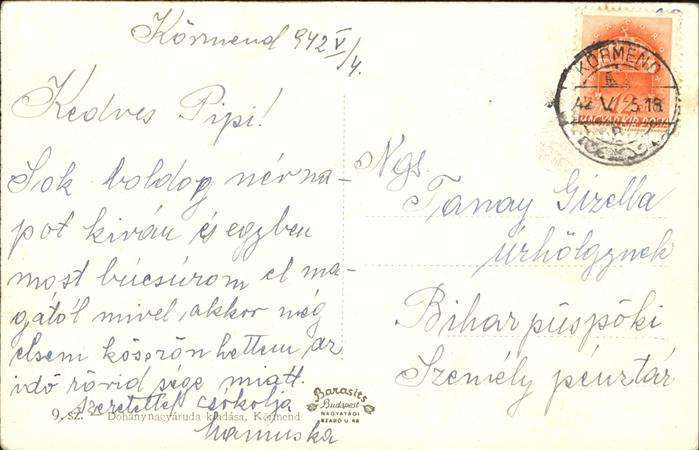 Körmend 942 V/4.
Kedves Pipi!
Sok boldog névna-
pot kiván és egyben
most búcsúzom el ma-
gától mivel, akkor még
elsem köszönhettem az
idő rövid sége miatt.
szeretettel csókolja
Mamuska
Ngs.
Tanay Gizella
úrhölgynek
Biharpüspöki
Személy pénztár
KÖRMEND
42 V. 5 18
9. sz. Dohánynagyáruda kiadása, Körmend
Barasits
Budapest
NAGYATÁDI
SZABÓ U 48